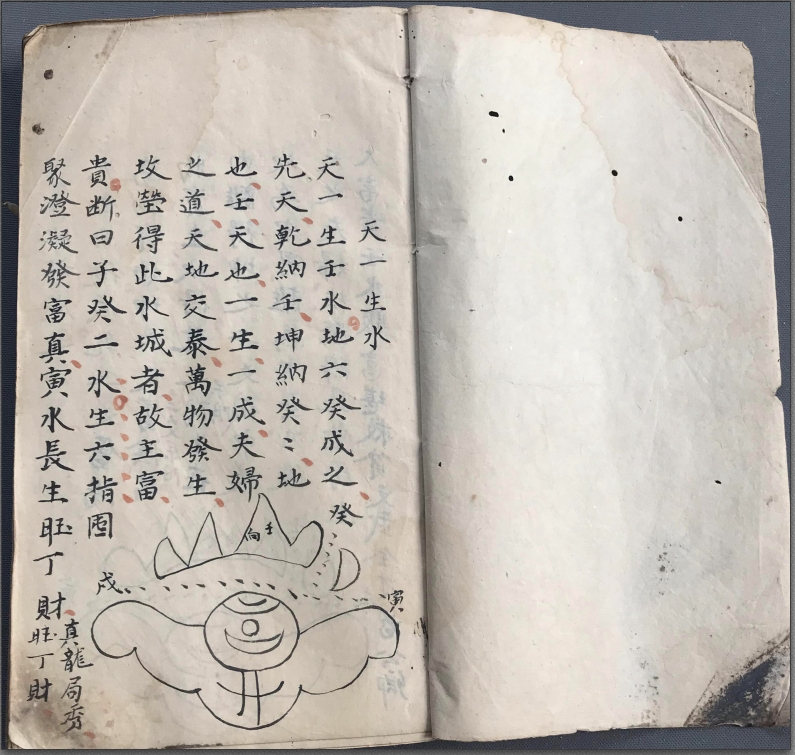 天一生水
天一生壬水地六癸成之
先天乾納壬坤納癸〻地
也壬天也一生一成夫婦
之道天地交泰萬物發生
坟塋得此水城者故主富
貴断曰子癸二水生六指
聚澄凝發富真寅水長生旺丁財旺丁財
真龍局秀
癸
壬
向
寅
戌